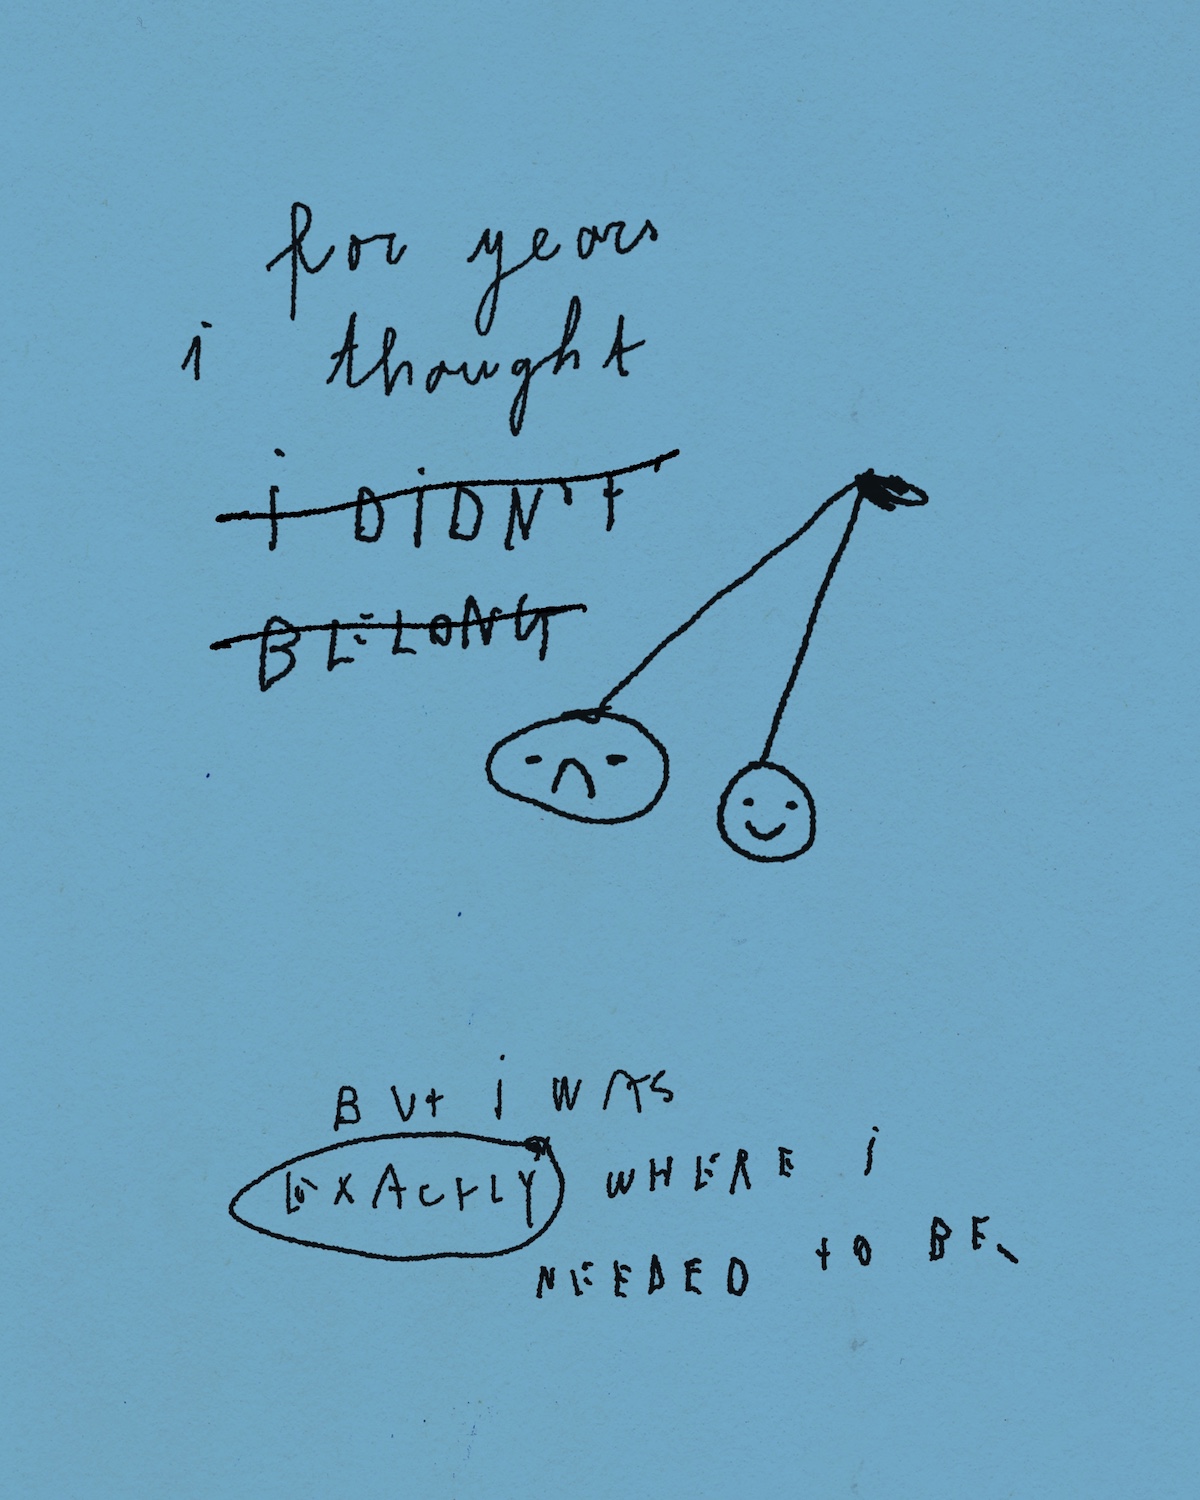 for years
i thought
i DiDN't
BELONG
BUt i WAS
EXACTLY WHERE i
NEEDED tO BE